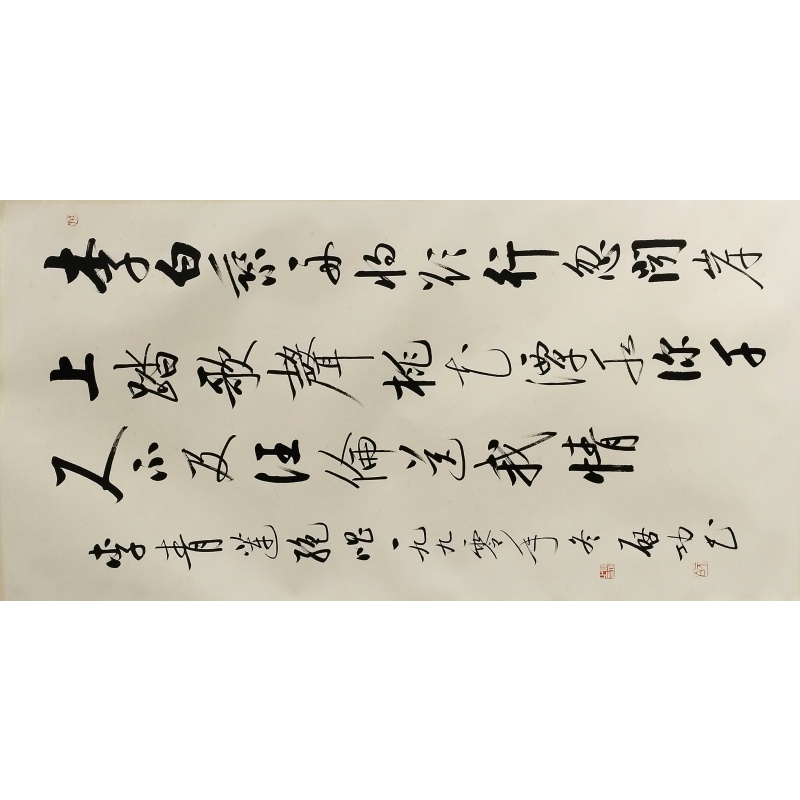 李白乘舟将欲行忽聞岸
上踏歌聲桃花潭水深千
尺不及汪倫送我情
李青蓮絶唱 一九九零年冬 启功书